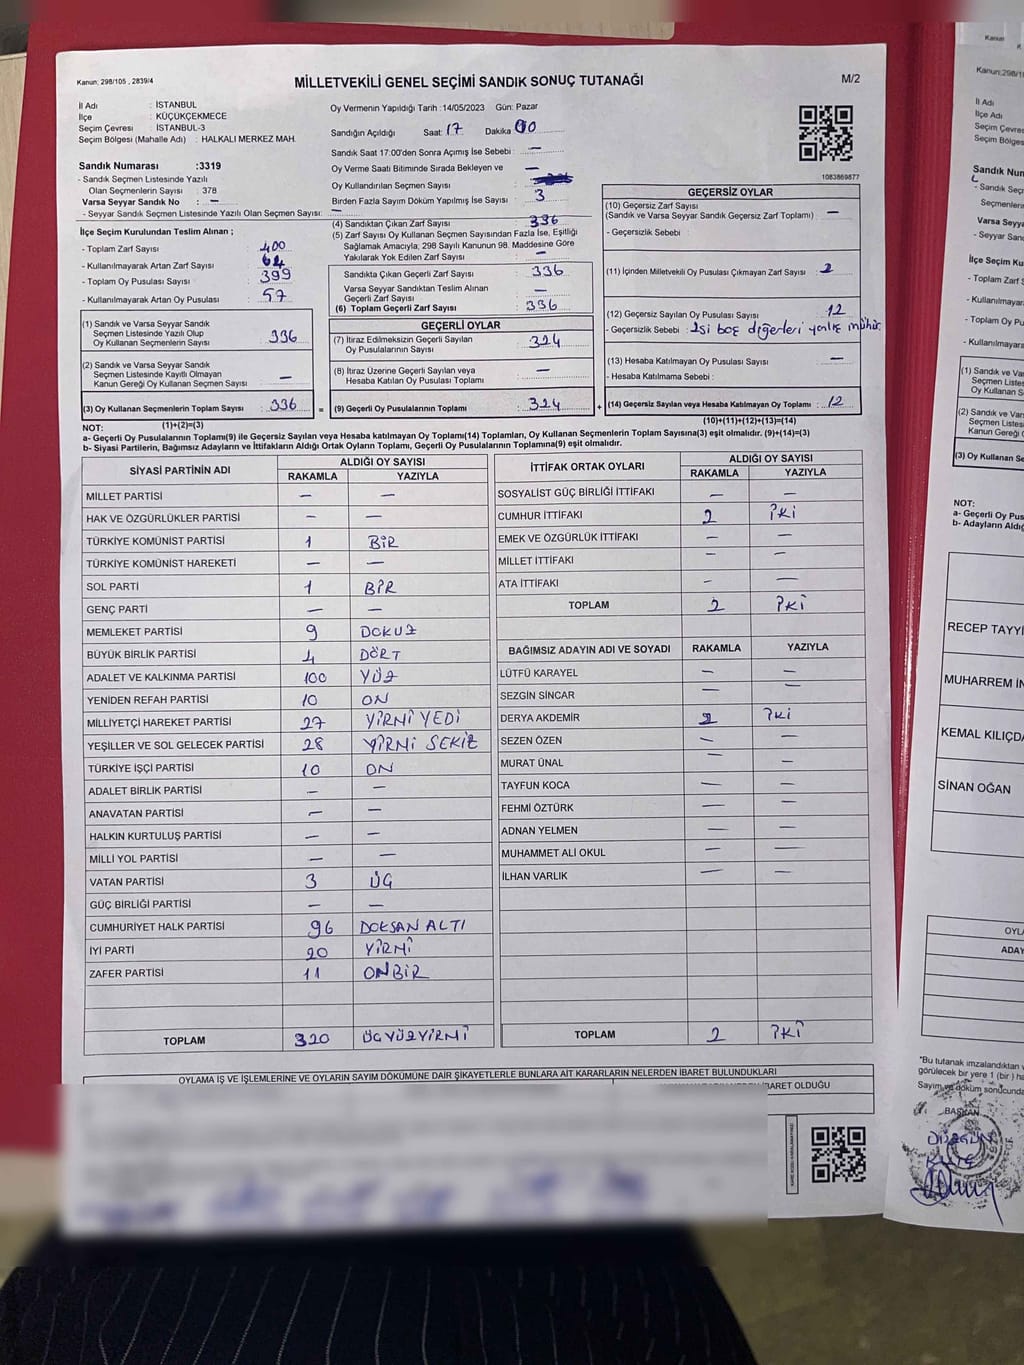 Kanun; 298/105 , 2839/4
MİLLETVEKİLİ GENEL SEÇİMİ SANDIK SONUÇ TUTANAĞI
M/2
İl Adı : İSTANBUL
İlçe : KÜÇÜKÇEKMECE
Seçim Çevresi : İSTANBUL-3
Seçim Bölgesi (Mahalle Adı) : HALKALI MERKEZ MAH.
Sandık Numarası :3319
- Sandık Seçmen Listesinde Yazılı
Olan Seçmenlerin Sayısı : 378
Varsa Seyyar Sandık No : —
- Seyyar Sandık Seçmen Listesinde Yazılı Olan Seçmen Sayısı: —
İlçe Seçim Kurulundan Teslim Alınan ;
- Toplam Zarf Sayısı : 400
- Kullanılmayarak Artan Zarf Sayısı : 64
- Toplam Oy Pusulası Sayısı : 399
- Kullanılmayarak Artan Oy Pusulası : 57
(1) Sandık ve Varsa Seyyar Sandık
Seçmen Listesinde Yazılı Olup
Oy Kullanan Seçmenlerin Sayısı : 336
(2) Sandık ve Varsa Seyyar Sandık
Seçmen Listesinde Kayıtlı Olmayan
Kanun Gereği Oy Kullanan Seçmen Sayısı : —
(3) Oy Kullanan Seçmenlerin Toplam Sayısı : 336
(1)+(2)=(3)
Oy Vermenin Yapıldığı Tarih :14/05/2023 Gün: Pazar
Sandığın Açıldığı Saat: 17 Dakika 00
Sandık Saat 17:00'den Sonra Açımış İse Sebebi : —
Oy Verme Saati Bitiminde Sırada Bekleyen ve
Oy Kullandırılan Seçmen Sayısı : —
Birden Fazla Sayım Döküm Yapılmış İse Sayısı : 3
(4) Sandıktan Çıkan Zarf Sayısı : 336
(5) Zarf Sayısı Oy Kullanan Seçmen Sayısından Fazla İse, Eşitliği
Sağlamak Amacıyla; 298 Sayılı Kanunun 98. Maddesine Göre
Yakılarak Yok Edilen Zarf Sayısı : —
Sandıkta Çıkan Geçerli Zarf Sayısı : 336
Varsa Seyyar Sandıktan Teslim Alınan
Geçerli Zarf Sayısı : —
(6) Toplam Geçerli Zarf Sayısı : 336
GEÇERLİ OYLAR
(7) İtiraz Edilmeksizin Geçerli Sayılan
Oy Pusulalarının Sayısı : 324
(8) İtiraz Üzerine Geçerli Sayılan veya
Hesaba Katılan Oy Pusulası Toplamı : —
= (9) Geçerli Oy Pusulalarının Toplamı : 324 +
1083869877
GEÇERSİZ OYLAR
(10) Geçersiz Zarf Sayısı
(Sandık ve Varsa Seyyar Sandık Geçersiz Zarf Toplamı) : —
- Geçersizlik Sebebi :
(11) İçinden Milletvekili Oy Pusulası Çıkmayan Zarf Sayısı : 2
(12) Geçersiz Sayılan Oy Pusulası Sayısı : 12
- Geçersizlik Sebebi : 2si boş diğerleri yanlış mühür
(13) Hesaba Katılmayan Oy Pusulası Sayısı : —
- Hesaba Katılmama Sebebi :
(14) Geçersiz Sayılan veya Hesaba Katılmayan Oy Toplamı : 12
(10)+(11)+(12)+(13)=(14)
NOT:
a- Geçerli Oy Pusulalarının Toplamı(9) ile Geçersiz Sayılan veya Hesaba katılmayan Oy Toplamı(14) Toplamları, Oy Kullanan Seçmenlerin Toplam Sayısına(3) eşit olmalıdır. (9)+(14)=(3)
b- Siyasi Partilerin, Bağımsız Adayların ve İttifakların Aldığı Ortak Oyların Toplamı, Geçerli Oy Pusulalarının Toplamına(9) eşit olmalıdır.
SİYASİ PARTİNİN ADI ALDIĞI OY SAYISI
RAKAMLA YAZIYLA
MİLLET PARTİSİ — —
HAK VE ÖZGÜRLÜKLER PARTİSİ — —
TÜRKİYE KOMÜNİST PARTİSİ 1 BİR
TÜRKİYE KOMÜNİST HAREKETİ — —
SOL PARTİ 1 BİR
GENÇ PARTİ — —
MEMLEKET PARTİSİ 9 DOKUZ
BÜYÜK BİRLİK PARTİSİ 4 DÖRT
ADALET VE KALKINMA PARTİSİ 100 YÜZ
YENİDEN REFAH PARTİSİ 10 ON
MİLLİYETÇİ HAREKET PARTİSİ 27 YİRMİ YEDİ
YEŞİLLER VE SOL GELECEK PARTİSİ 28 YİRMİ SEKİZ
TÜRKİYE İŞÇİ PARTİSİ 10 ON
ADALET BİRLİK PARTİSİ — —
ANAVATAN PARTİSİ — —
HALKIN KURTULUŞ PARTİSİ — —
MİLLİ YOL PARTİSİ — —
VATAN PARTİSİ 3 ÜÇ
GÜÇ BİRLİĞİ PARTİSİ — —
CUMHURİYET HALK PARTİSİ 96 DOKSAN ALTI
İYİ PARTİ 20 YİRMİ
ZAFER PARTİSİ 11 ONBİR
TOPLAM 320 ÜÇ YÜZ YİRMİ
İTTİFAK ORTAK OYLARI ALDIĞI OY SAYISI
RAKAMLA YAZIYLA
SOSYALİST GÜÇ BİRLİĞİ İTTİFAKI — —
CUMHUR İTTİFAKI 2 İKİ
EMEK VE ÖZGÜRLÜK İTTİFAKI — —
MİLLET İTTİFAKI — —
ATA İTTİFAKI — —
TOPLAM 2 İKİ
BAĞIMSIZ ADAYIN ADI VE SOYADI RAKAMLA YAZIYLA
LÜTFÜ KARAYEL — —
SEZGİN SİNCAR — —
DERYA AKDEMİR 2 İKİ
SEZEN ÖZEN — —
MURAT ÜNAL — —
TAYFUN KOCA — —
FEHMİ ÖZTÜRK — —
ADNAN YELMEN — —
MUHAMMET ALİ OKUL — —
İLHAN VARLIK — —
TOPLAM 2 İKİ
OYLAMA İŞ VE İŞLEMLERİNE VE OYLARIN SAYIM DÖKÜMÜNE DAİR ŞİKAYETLERLE BUNLARA AİT KARARLARIN NELERDEN İBARET BULUNDUKLARI
İBARET OLDUĞU
Kanun
Kanun;298/1
İl Adı
İlçe Adı
Seçim Çevresi
Seçim Bölges
Sandık Num
- Sandık Seç
Seçmenleri
Varsa Seyy
- Seyyar San
İlçe Seçim Ku
- Toplam Zarf
- Kullanılmaya
- Toplam Oy P
- Kullanılmaya
(1) Sandık ve Va
Seçmen Listes
Oy Kullanan S
(2) Sandık ve Va
Seçmen Liste
Kanun Gereği O
(3) Oy Kullanan Se
NOT:
a- Geçerli Oy Pus
b- Adayların Aldığ
RECEP TAYYİ
MUHARREM İN
KEMAL KILIÇDA
SİNAN OĞAN
OYLA
ADAY
*Bu tutanak imzalandıktan v
görülecek bir yere 1 (bir ) ha
Sayım ve döküm sonucunda
BAŞKAN